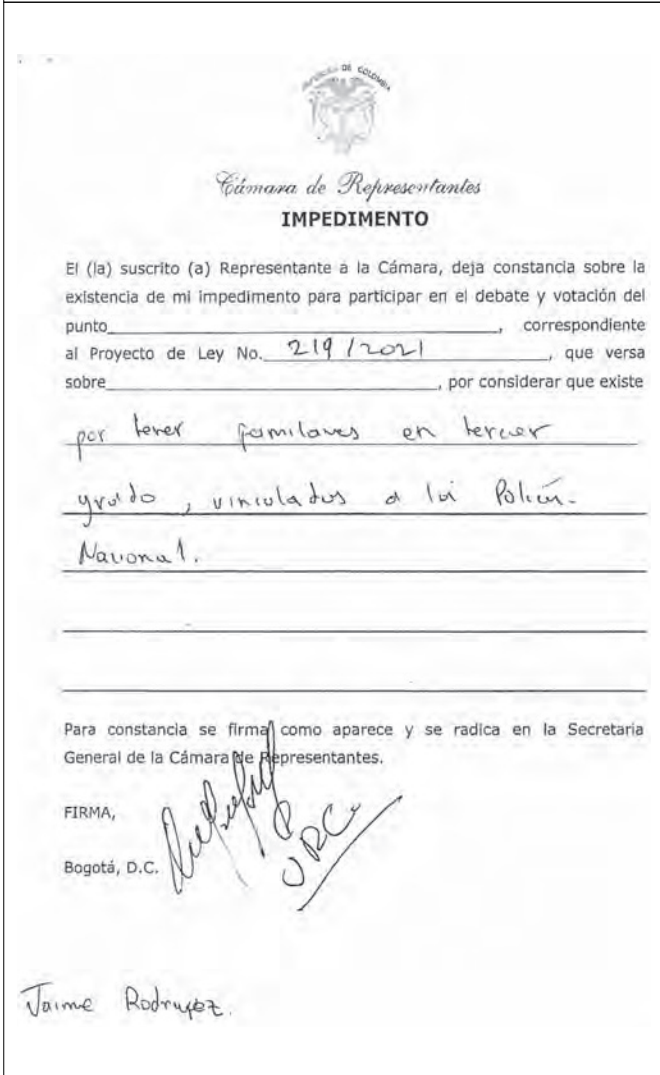 REPUBLICA DE COLOMBIA
Cámara de Representantes
IMPEDIMENTO
El (la) suscrito (a) Representante a la Cámara, deja constancia sobre la
existencia de mi impedimento para participar en el debate y votación del
punto____________, correspondiente
al Proyecto de Ley No. 219 / 2021, que versa
sobre____________, por considerar que existe
por tener familiares en tercer
grado, vinculados a la Policía
Nacional.
Para constancia se firma como aparece y se radica en la Secretaria
General de la Cámara de Representantes.
FIRMA,
Bogotá, D.C.
Jaime Rodríguez.